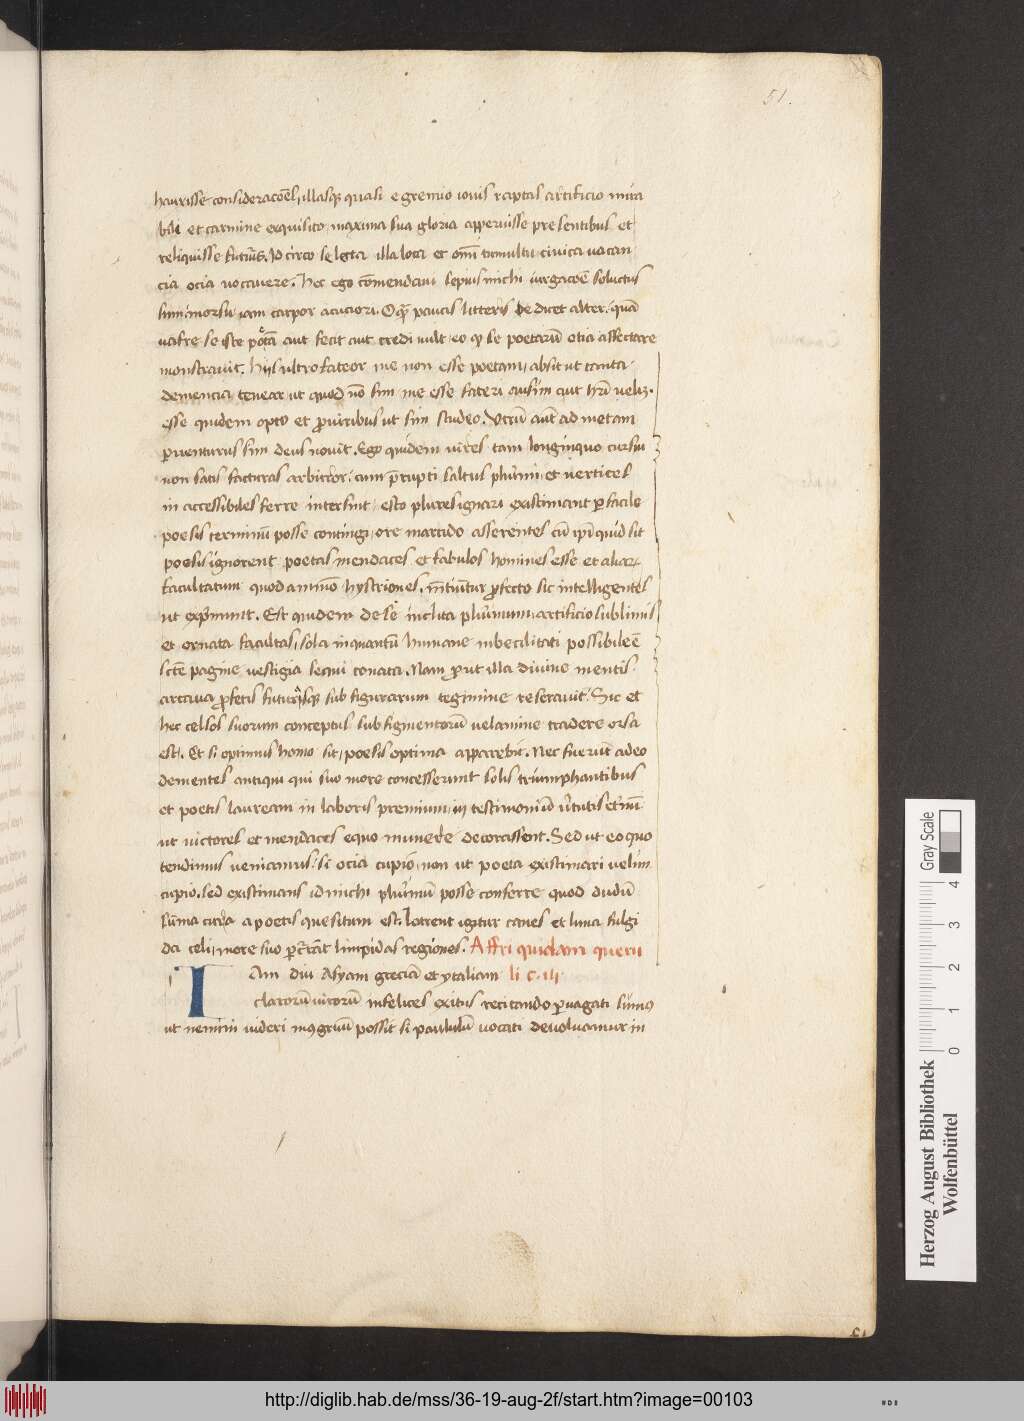 51.
hausisse consideracoēs, illasq quasi e gremio iovis raptas artificio mira
bili et carmine exquisito maxima sua gloria apperuisse presentibus et
reliquisse futuris. Idcirco selecta illa loca et omī tumultu civica vacan
cia ocia uocavere. Hec ego cōmendavi sepius michi iurgacoē solucius
sum morsu iam carpor acuciori. Oqꝫ paucis litteris dedicet alter quā
uafre se iste poeta aut fecit aut credi uult eo qꝫ se poetarū otia affectare
monstravit. Hijs ultro fateor me non esse poetam, absit ut tanta
demencia tenear ut quod nō sim me esse fateri ausim aut
esse quidem opto et p uiribus ut sim studeo. Utrū aūt ad metam
pventurus sim deus novit. Ego quidem vires tam longinquo cursui
non satis facturas arbitror cum prupti saltus plurimi et vertices
in accessibiles ferre intersint, esto plures ignari existimant p facile
poesis terminū posse contingi, ore marcido asserentes cū ipi quid sit
poesis ignorent poetas mendaces et fabulos homines esse et aliar
facultatum quodammō hystriones, profecto sic intelligentes
ut exprimunt. Est quidem de se inclita plurimum artificio sublimis
et ornata facultas, sola inquantū humane inbecilitati possibile ē
sctē pagine vestigia sequi conata. Nam prout illa divine mentis
archana profetis futuraqꝫ sub figurarum tegmine reseravit. Sic et
hec celsos suorum conceptus sub figmentorū velamine tradere orsa
est. Et si optimus homo sit, poesis optima apparebit. Nec fuerūt adeo
dementes antiqui qui suo more concesserunt solis triumphantibus
et poetis lauream in laboris premium, in testimoniū virtutis eternū
ut victores et mendaces equo munere decorassent. Sed ut eo quo
tendimus veniamus. si ocia cupio, non ut poeta existimari velim
cupio. sed existimans id michi plurimū posse conferre quod dudū
sūma cura a poetis quesitum est. Latrent igitur canes et luna fulgi
da celi more suo pctāt limpidas regiones. Affri quidam queru
li c. iii
Iam diu Asyam greciā et ytaliam
clarorū virorū infelices exitus recitando pvagati sumus
ut nemini videri incongruū possit si paululū vocati devolvamur in
Gray Scale
0 1 2 3 4
Herzog August Bibliothek
Wolfenbüttel
http://diglib.hab.de/mss/36-19-aug-2f/start.htm?image=00103